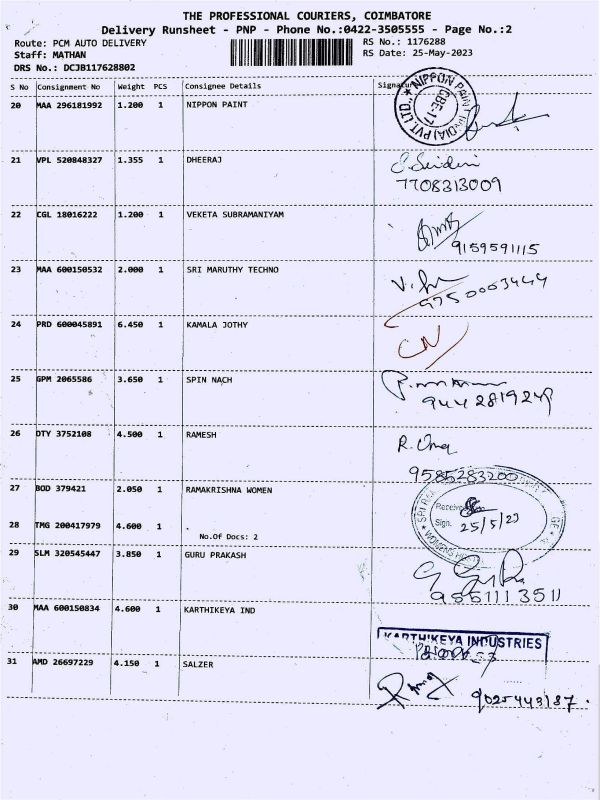 THE PROFESSIONAL COURIERS, COIMBATORE
Delivery Runsheet - PNP - Phone No.:0422-3505555 - Page No.:2
Route: PCM AUTO DELIVERY RS No.: 1176288
Staff: MATHAN RS Date: 25-May-2023
DRS No.: DCJB117628802
S No Consignment No Weight PCS Consignee Details Signature
20 MAA 296181992 1.200 1 NIPPON PAINT
NIPPON PAINT (INDIA) PVT. LTD.,
21 VPL 520848327 1.355 1 DHEERAJ
7708313009
22 CGL 18016222 1.200 1 VEKETA SUBRAMANIYAM
9159591115
23 MAA 600150532 2.000 1 SRI MARUTHY TECHNO
9750003444
24 PRD 600045891 6.450 1 KAMALA JOTHY
CN
25 GPM 2065586 3.650 1 SPIN NACH
9442819249
26 DTY 3752108 4.500 1 RAMESH
R. Uma
9585283200
27 BOD 379421 2.050 1 RAMAKRISHNA WOMEN
Received
28 TMG 200417979 4.600 1
Sign. 25/5/23
No.Of Docs: 2
29 SLM 320545447 3.850 1 GURU PRAKASH
9551113511
30 MAA 600150834 4.600 1 KARTHIKEYA IND
KARTHIKEYA INDUSTRIES
31 AMD 26697229 4.150 1 SALZER
9025443187.